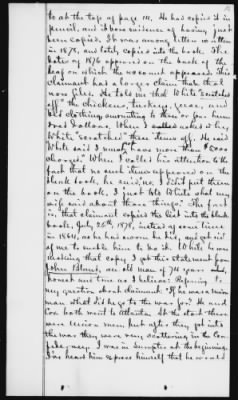 to at the top of page 111. He had copied it in
pencil, and it bore evidence of having just
been copied. It was among letters written
in 1878, and lately copied into the book. The
dates of 1876 appeared on the back of the
leaf on which the account appeared. This
claimant had a larger claim than that
now filed. He told me that White "scratched
off" the chickens, turkeys, geese, and
old clothing amounting to three or four hun
dred dollars. When I asked him why
White "scratched" these items off. He said
White said I must "not have more than $5000
charged." When I called his attention to the
fact that no such items appeared on the
blank book, he said, no, I didn't put them
on the book. I just told White what my
wife said about those things. The fact
is, that claimant copied the list into the blank
book, July 26th 1878, instead of some time
in 1864, as he had sworn he did, and got rid
of me to enable him to do it. While he was
making that copy I got this statement from
John Blount, an old man of 74 years and,
honest and true as I believe: Referring to
my question about claimant "If he were a union
man what did he go to the war for? He and
Cox both went to Atlanta. At the start there
were union men but after they got into
the war they were very scattering in the Con
federacy. I was in Sumpter at the beginning.
I've heard him express himself that he would